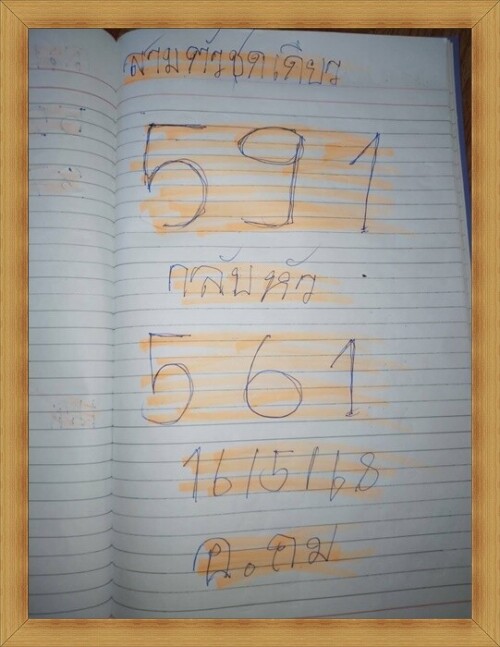 สามตัวชุดเดียว
591
กลับหัว
561
16/5/68
อ.ถม